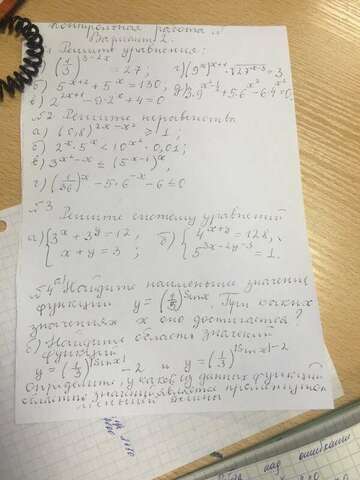 Контрольная работа
Вариант 2.
1 Решите уравнения:
а) (1/3)^(3-2x) = 27; г) (9^x)^(x+1) · √27^(x-3) = 3
б) 5^(x+2) + 5^x = 130;
в) 2^(2x+1) - 9·2^x + 4 = 0
№2 Решите неравенства
а) (0,8)^(2x-x²) ≥ 1;
б) 2^x · 5^x < 10^(x²) · 0,01;
в) 3^(x²-x) ≤ (5^(x-1))^x;
г) (1/36)^x - 5·6^(-x) - 6 ≤ 0
№3
Решите систему уравнений
а) { 3^x + 3^y = 12, б) { 4^(x+y) = 128,
x + y = 3; 5^(3x-2y-3) = 1.
№4 а) Найдите наименьшее значение
функции y = (1/5)^(sin x). При каких
значениях x оно достигается?
б) Найдите область значений
функции
y = (1/3)^|sin x| - 2 и y = (1/3)^(|sin x|-2)
Определите, у какой из данных функций
область значений является промежуток
длины
над ошибками